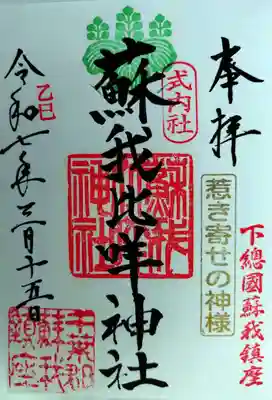 奉拝
下總國蘇我鎮座
惹き寄せの神様
式内社
蘇我比咩神社
蘇我
神社
乙巳
令和七年三月十五日
千葉郡
蘇我
鎮座